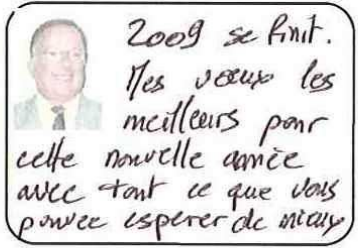 2009 se finit.
Mes voeux les
meilleurs pour
cette nouvelle année
avec tout ce que vous
pouvez esperer de mieux